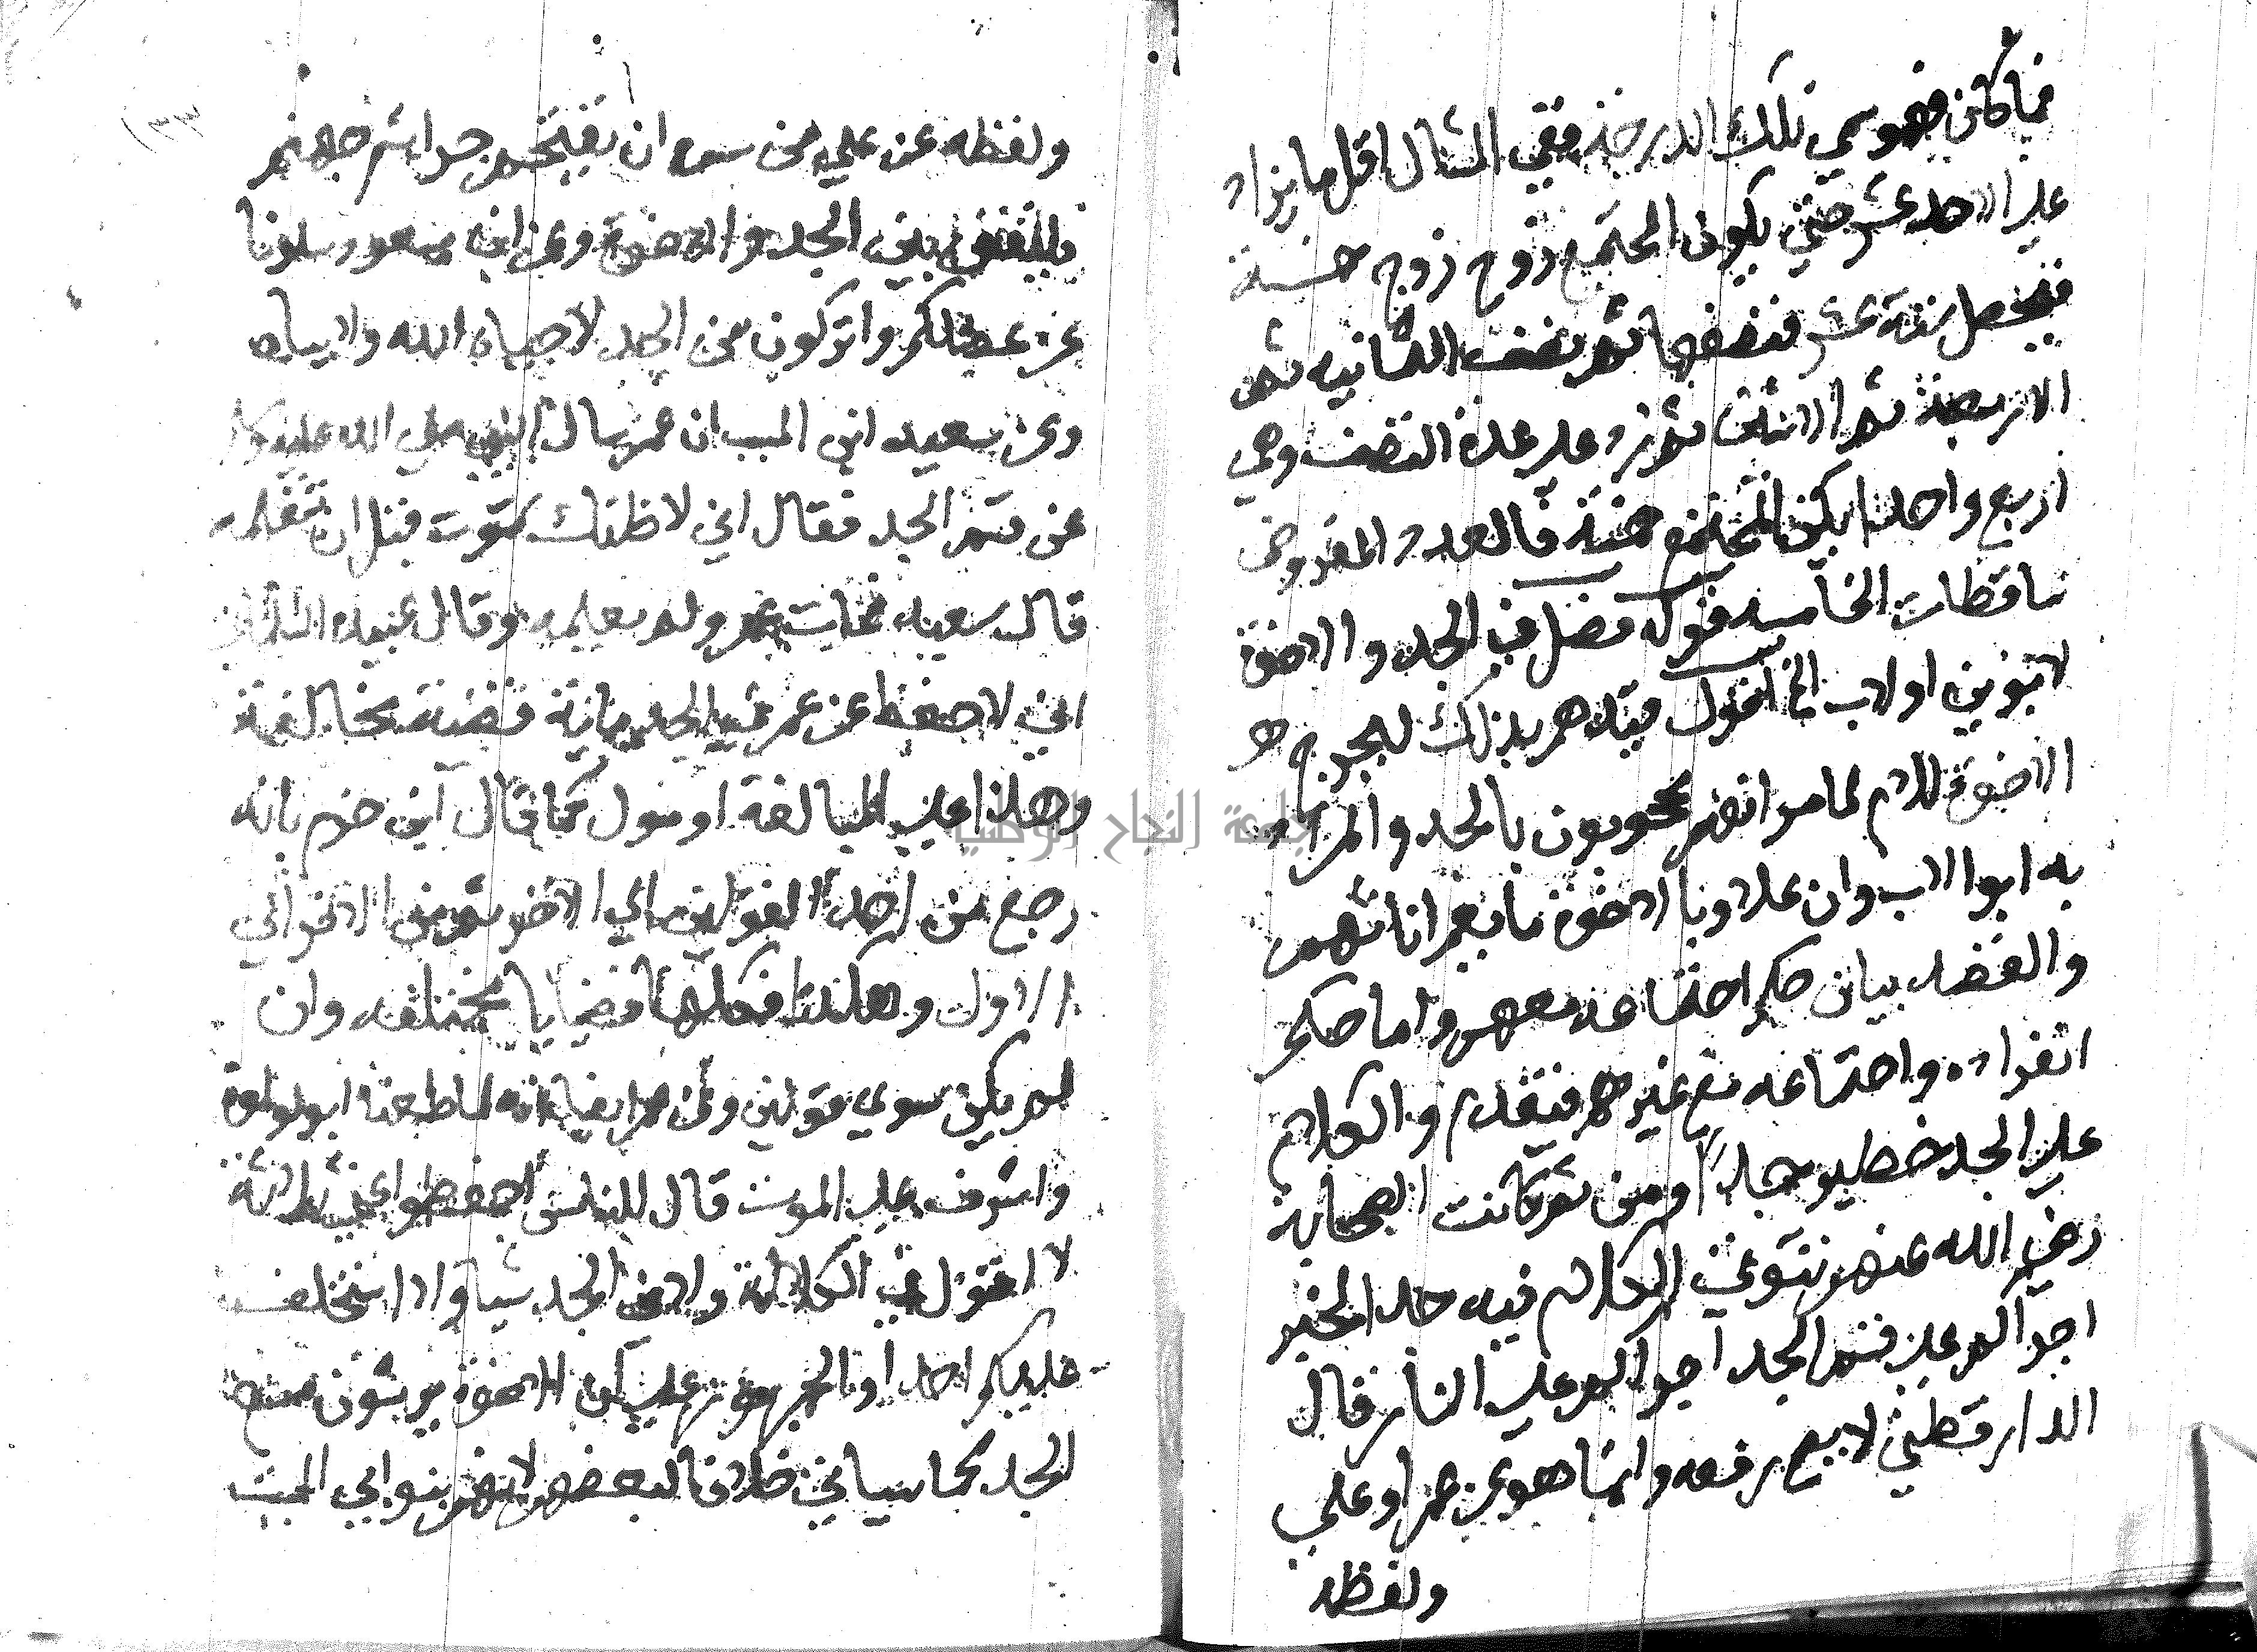 فما كان فهو سمي تلك الدرجة ففي المثال اقل ما يزاد
علي الاحد عشر حتي يكون المجتمع زوج زوج خمسة
فيحصل ستة عشر فنصفها ثم نصف الثمانية ثم
الاربعة ثم الاثنين ثم زد علي عدة النصف وهي
اربع واحدا يكن المجتمع خمسة فالعدد المفروض
ساقطات الخامسة قوله فصل في الجد والاخوة
لابوين او لاب الخ اقول قيدهم بذلك ليخرج
الاخوة للام لما مر انهم محجوبون بالجد والمراد
به ابو الاب وان علا وبالاخوة ما يعم اناثهم
والقصد بيان حكم اجتماعه معهم واما حكم
انفراده واجتماعه مع غيرهم فتقدم والكلام
علي الجد خطير جدا ومن ثم كانت الصحابة
رضي الله عنهم تتوقي الكلام فيه جدا لخبر
اجراكم علي قسم الجد اجراكم علي النار قال
الدارقطني لا يصح رفعه وانما هو عن عمر او علي
ولفظه
ولفظه عن علي من سره ان يقتحم جراثيم جهنم
فليقض بين الجد والاخوة وعن ابن مسعود سلونا
عن عضلكم واتركونا من الجد لا حياه الله ولا بياه
وعن سعيد ابن المسيب ان عمر سال النبي صلي الله عليه وسلم
عن قسم الجد فقال اني لاظنك تموت قبل ان تعلمه
قال سعيد فمات عمر ولم يعلمه وقال عبيدة السلماني
اني لاحفظ عن عمر في الجد مائة قضية مخالفة
وهذا علي المبالغة او مول كما قال ابن حزم بانه
رجع من احد القولين الي الاخر ثم من الاخر الي
الاول وهكذا فكلها قضايا مختلفه وان
لم يكن سوي قولين وعن عمر ايضا انه لما طعنه ابو لولوة
واشرف علي الموت قال للناس احفظوا عني ثلاثة
لا اقول في الكلالة ولا في الجد شيا ولا استخلف
عليكم احدا والجمهور علي ان الاخوة يرثون مع
الجد كما سياتي خلافا لبعضهم لانهم بنو ابي الميت
١٣٣
جامعة النجاح الوطنية